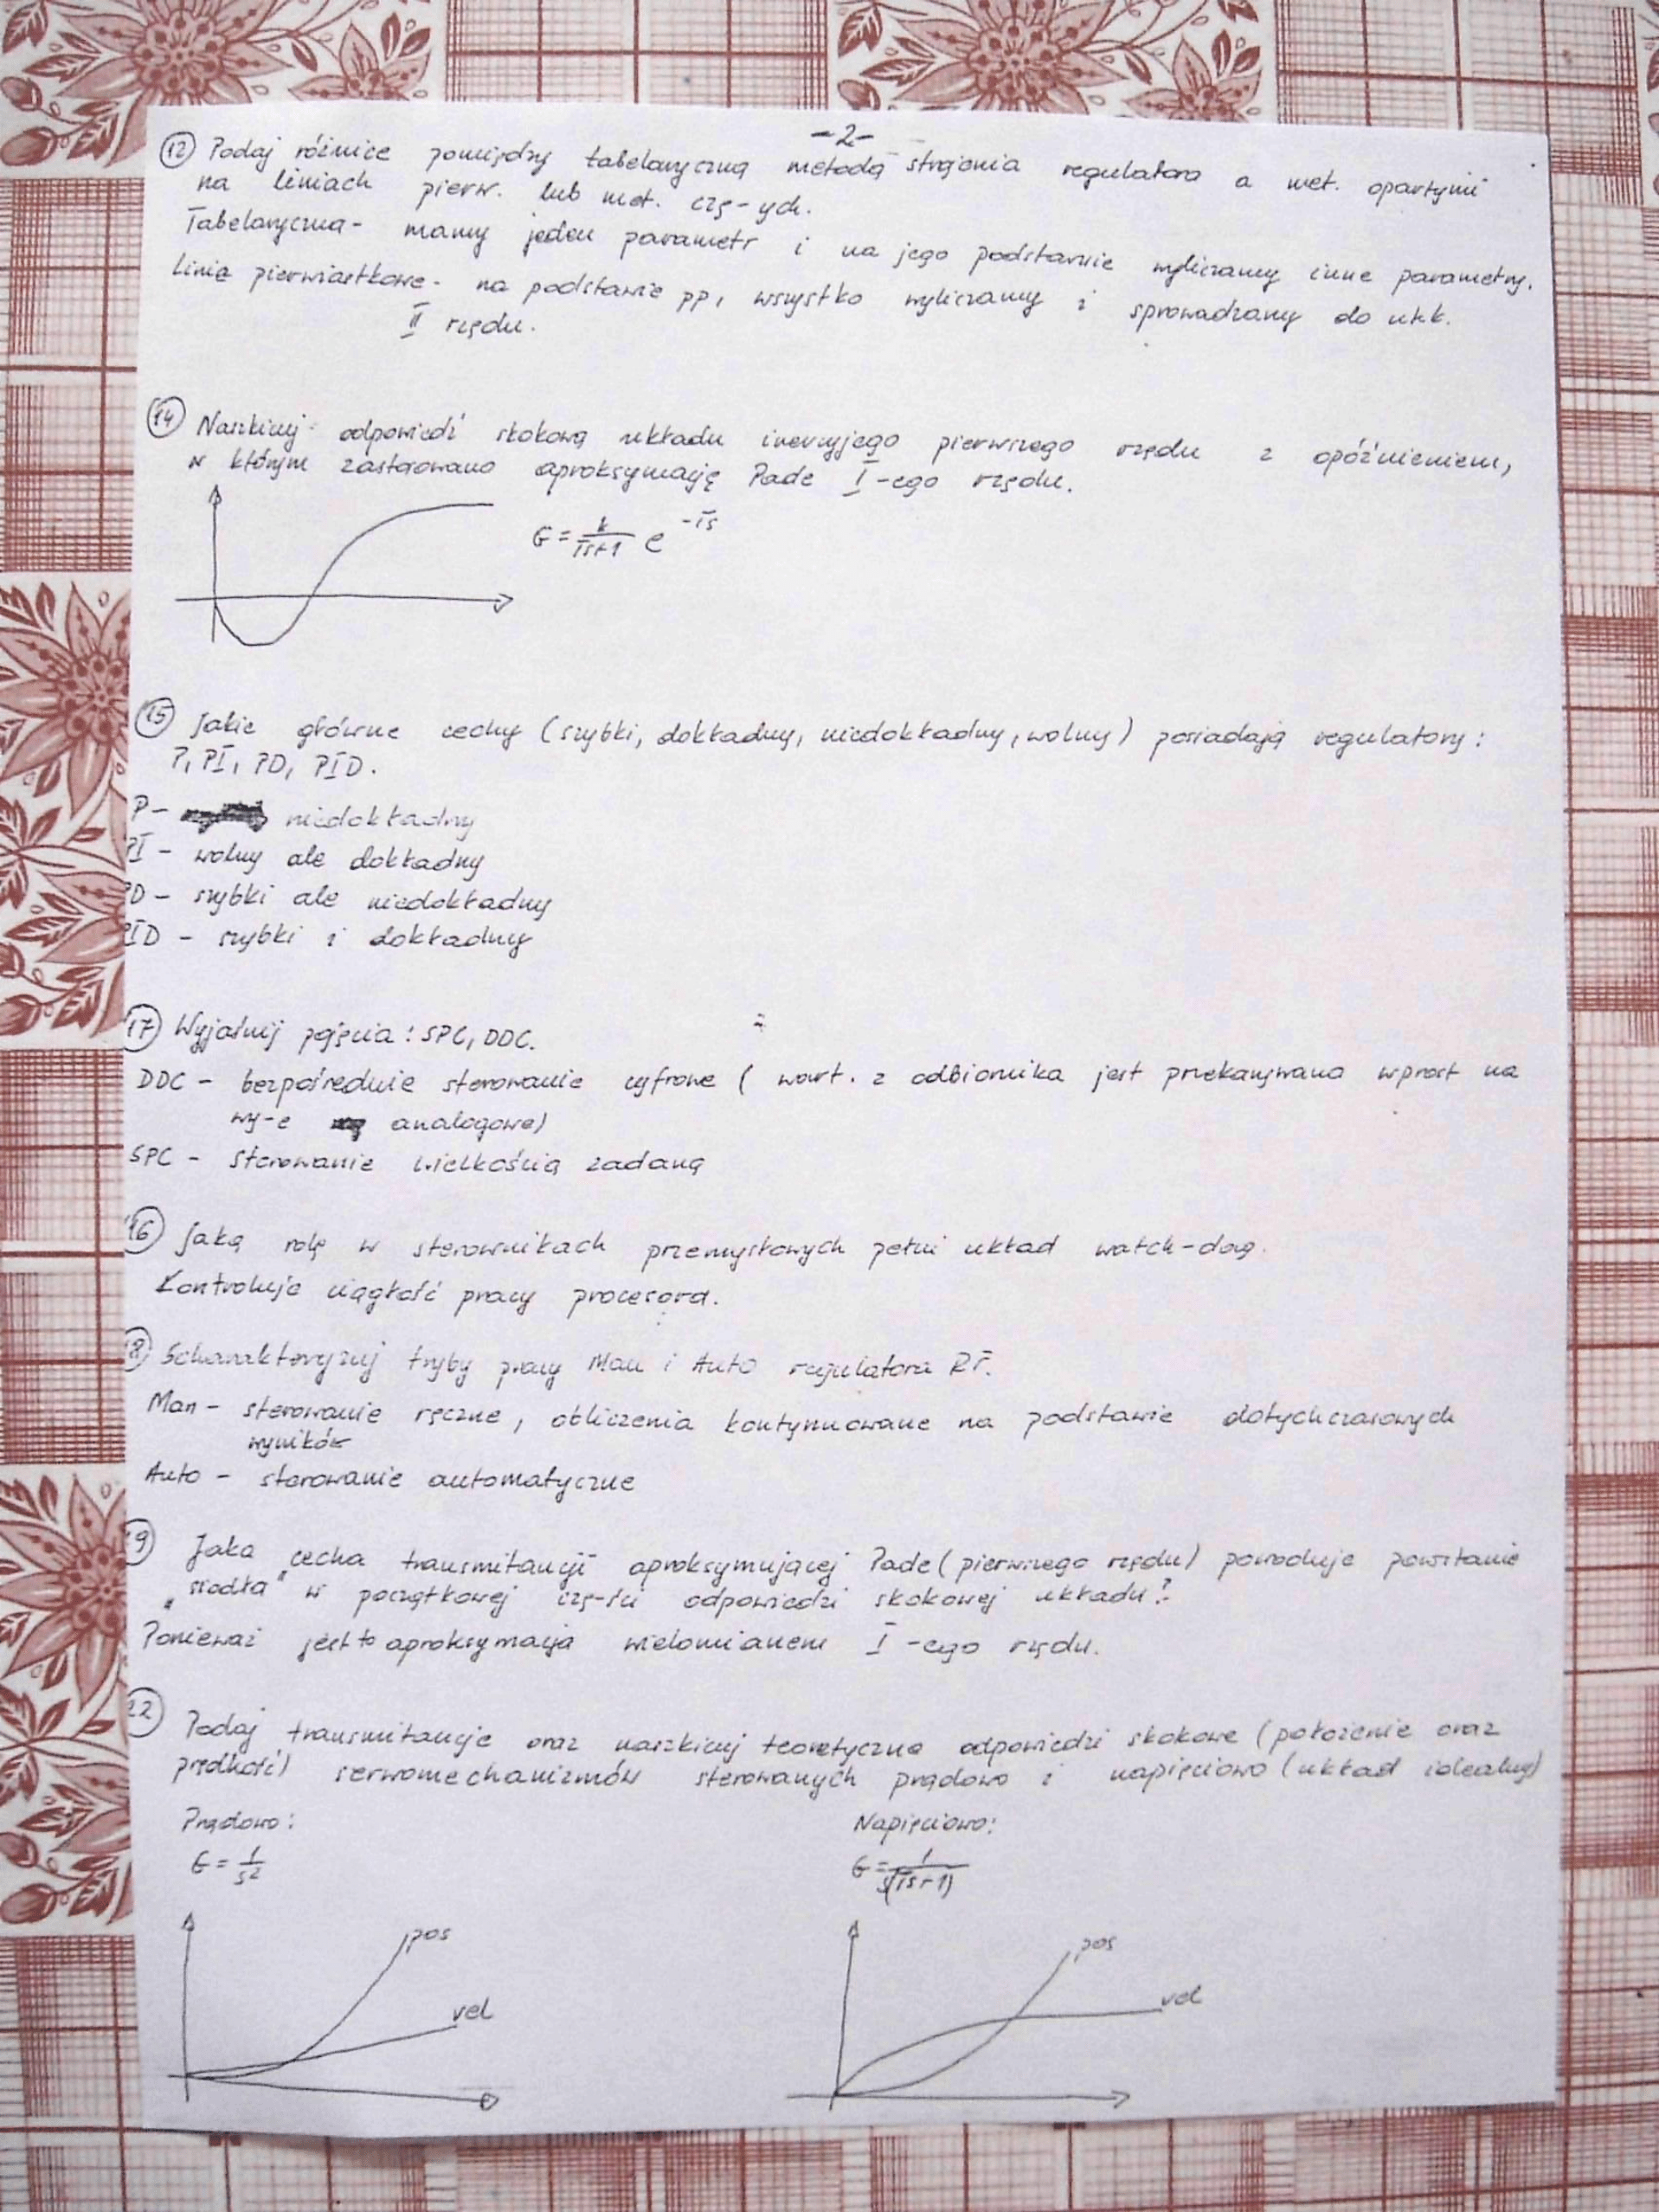 -2-
12 Podaj różnice pomiędzy tabelaryczną metodą strojenia regulatora a met. opartymi
na liniach pierw. lub met. czę-ych.
Tabelaryczna- mamy jeden parametr i na jego podstawie wyliczamy inne parametry.
Linie pierwiastkowe- na podstawie pp, wszystko wyliczamy i sprowadzamy do ukł.
II rzędu.
14 Naszkicuj odpowiedź skokową układu inercyjego pierwszego rzędu z opóźnieniem,
w którym zastosowano aproksymację Pade I-ego rzędu.
G = k/(Ts+1) e^-Ts
15 Jakie główne cechy (szybki, dokładny, niedokładny, wolny) posiadają regulatory:
P, PI, PD, PID.
P- niedokładny
PI - wolny ale dokładny
PD - szybki ale niedokładny
PID - szybki i dokładny
17 Wyjaśnij pojęcia: SPC, DDC.
DDC - bezpośrednie sterowanie cyfrowe ( wart. z odbiornika jest przekazywana wprost na
wy-e analogowe)
SPC - Sterowanie wielkością zadaną
16 Jaką rolę w sterownikach przemysłowych pełni układ watch-dog.
Kontroluje ciągłość pracy procesora.
18 Scharakteryzuj tryby pracy Man i Auto regulatora
Man - sterowanie ręczne, obliczenia kontynuowane na podstawie dotychczasowych
wyników
Auto - sterowanie automatyczne
19 Jaka cecha transmitancji aproksymującej Pade (pierwszego rzędu) powoduje powstanie
„siodła" w początkowej czę-ści odpowiedzi skokowej układu?
Ponieważ jest to aproksymacja wielomianem I-ego rzędu.
22 Podaj transmitancje oraz naszkicuj teoretyczne odpowiedzi skokowe (położenie oraz
prędkość) serwomechanizmów sterowanych prądowo i napięciowo (układ idealny)
Prądowo: Napięciowo:
G = 1/s² G = 1/(s(Ts+1))
pos pos
vel vel